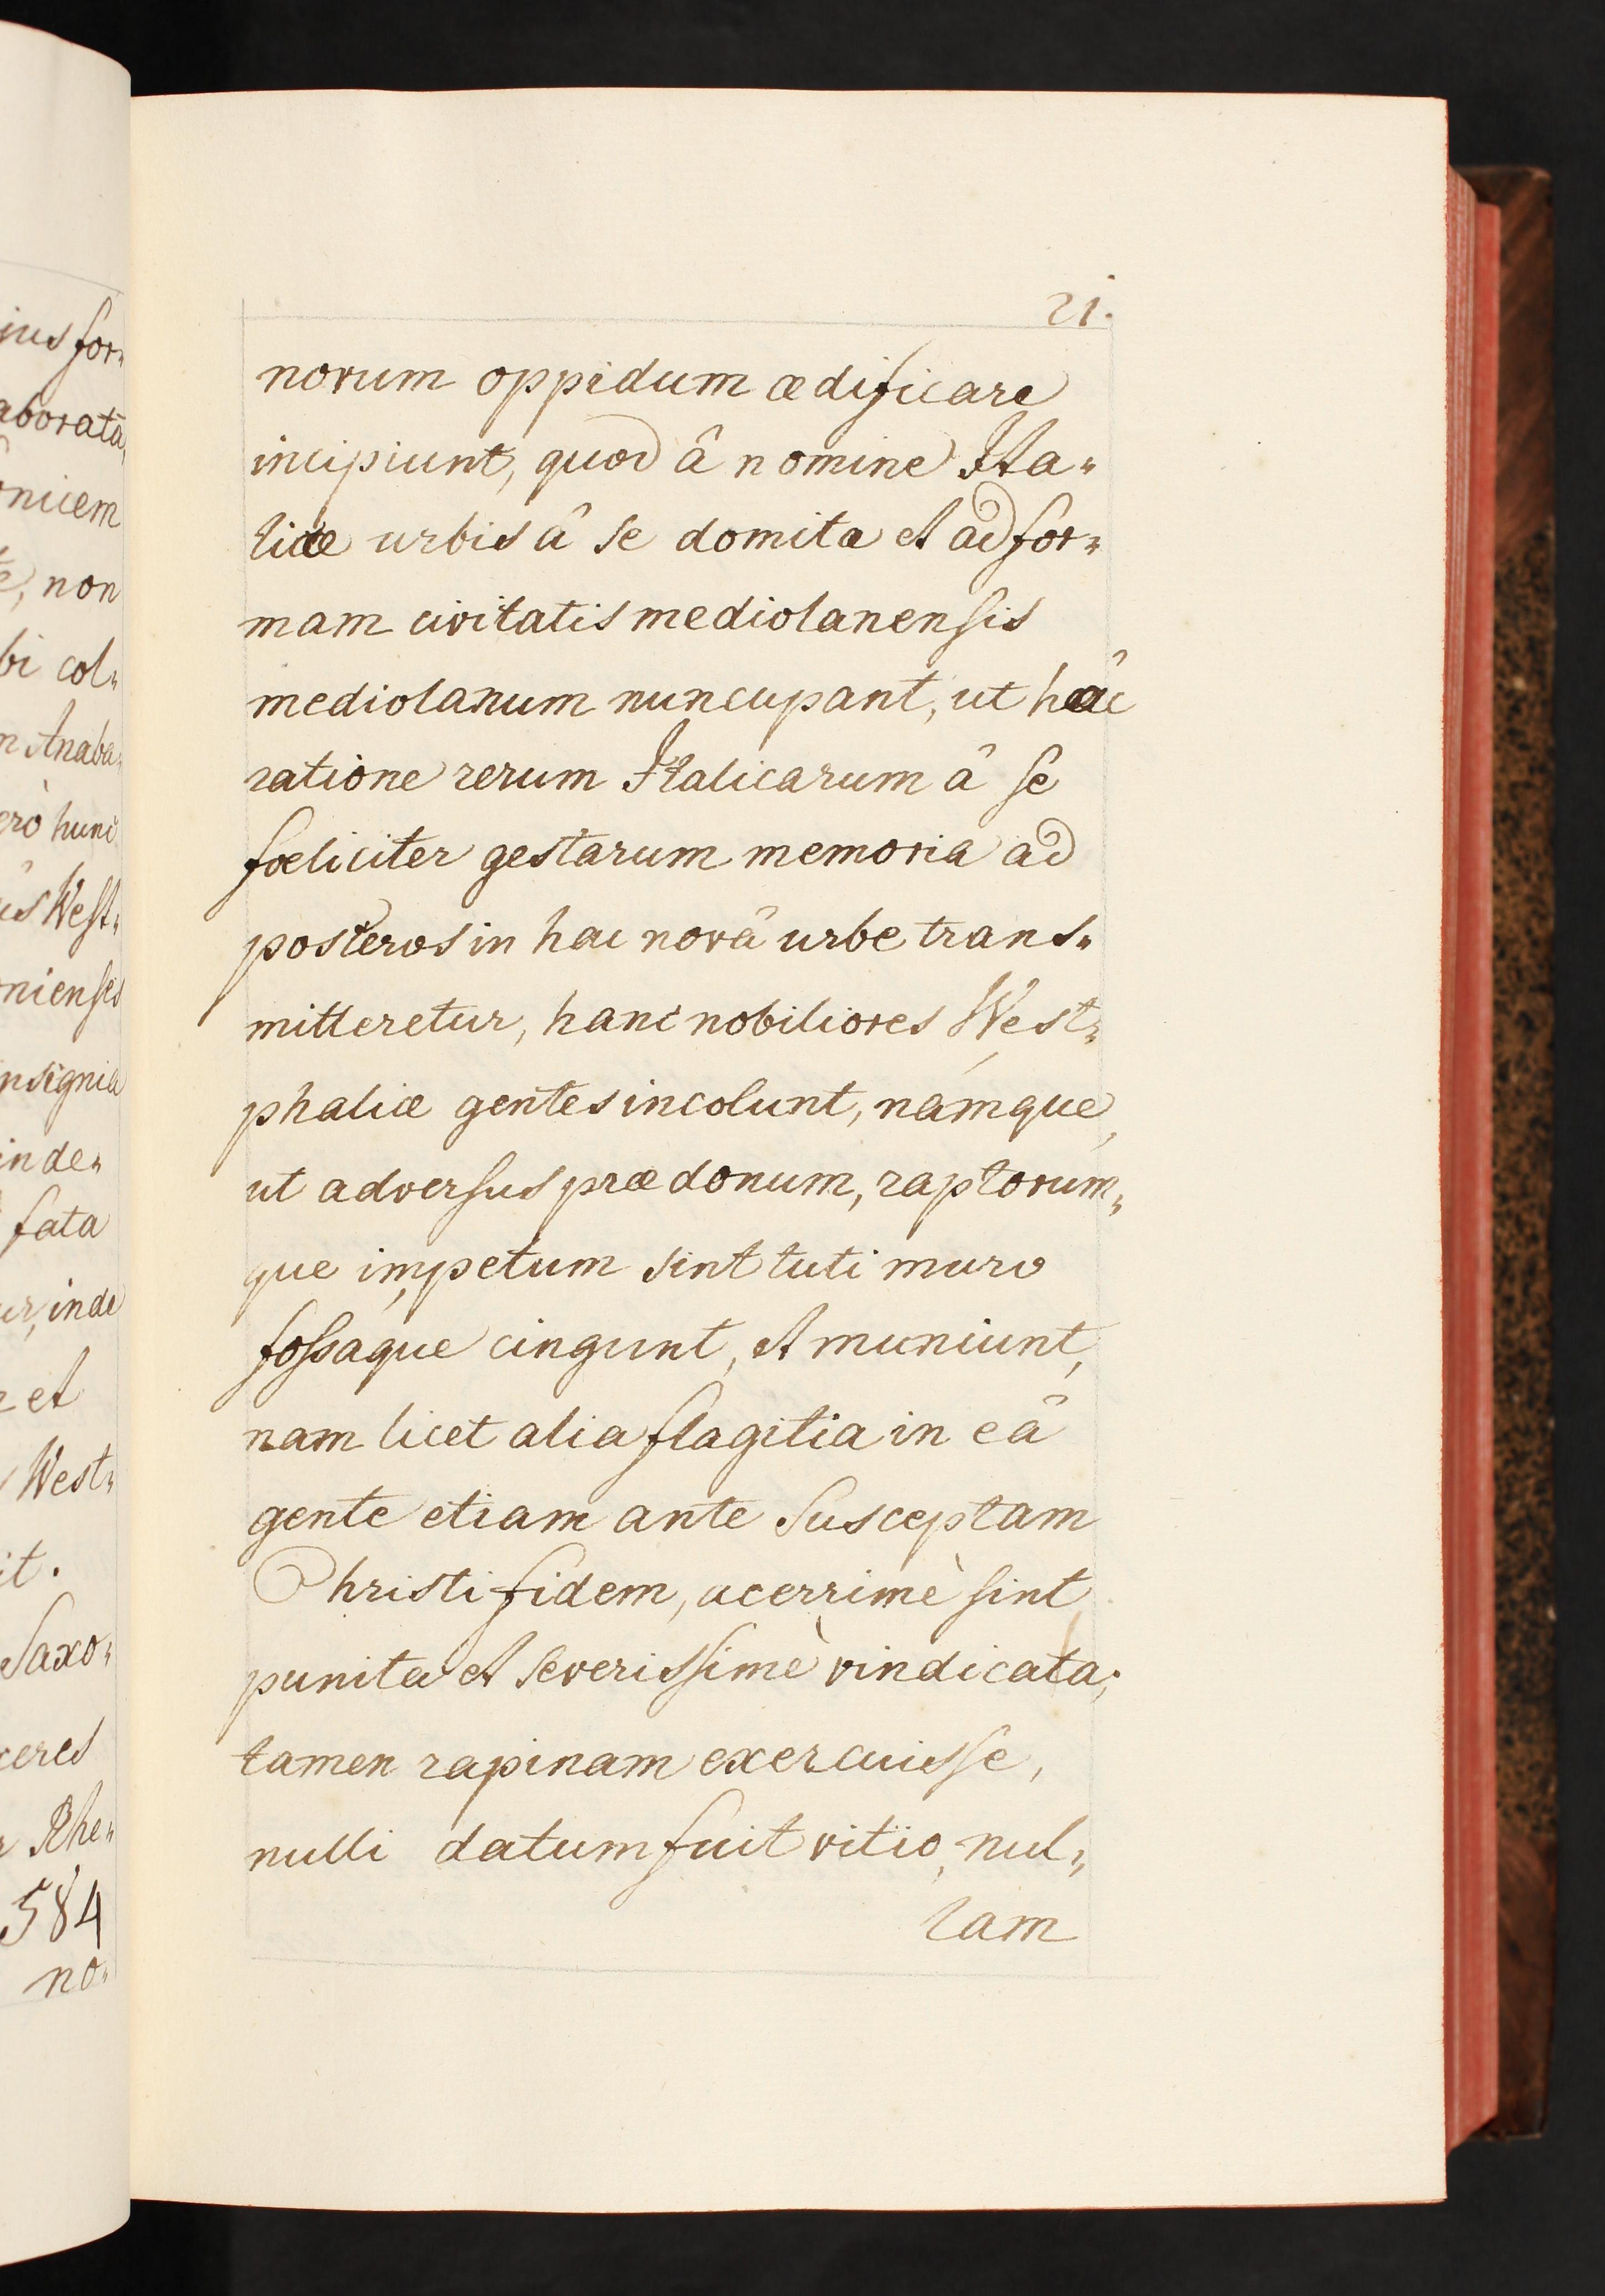 21.
novum oppidum ædificare
incipiunt, quod â nomine Ita-
licæ urbis â se domitæ et ad for-
mam civitatis mediolanensis
mediolanum nuncupant, ut hâc
ratione rerum Italicarum â se
fœliciter gestarum memoria ad
posteros in hac novâ urbe trans-
mitteretur, hanc nobiliores West-
phaliæ gentes incolunt, námque,
ut adversus prædonum, raptorum-
que impetum sint tuti muro
fossaque cingunt, et muniunt,
nam licet alia flagitia in eâ
gente etiam ante susceptam
Christi fidem, acerrimè sint
punita et severissimè vindicata;
tamen rapinam exercuisse,
nulli datum fuit vitio, nul-
lam
ius for-
aborata,
nicem
, non
bi col-
Anaba-
erò hunc
us West-
nienses
nsignia
inde-
fata
ur, inde
et
West-
it.
Saxo-
ceres
Rhe-
584
no-